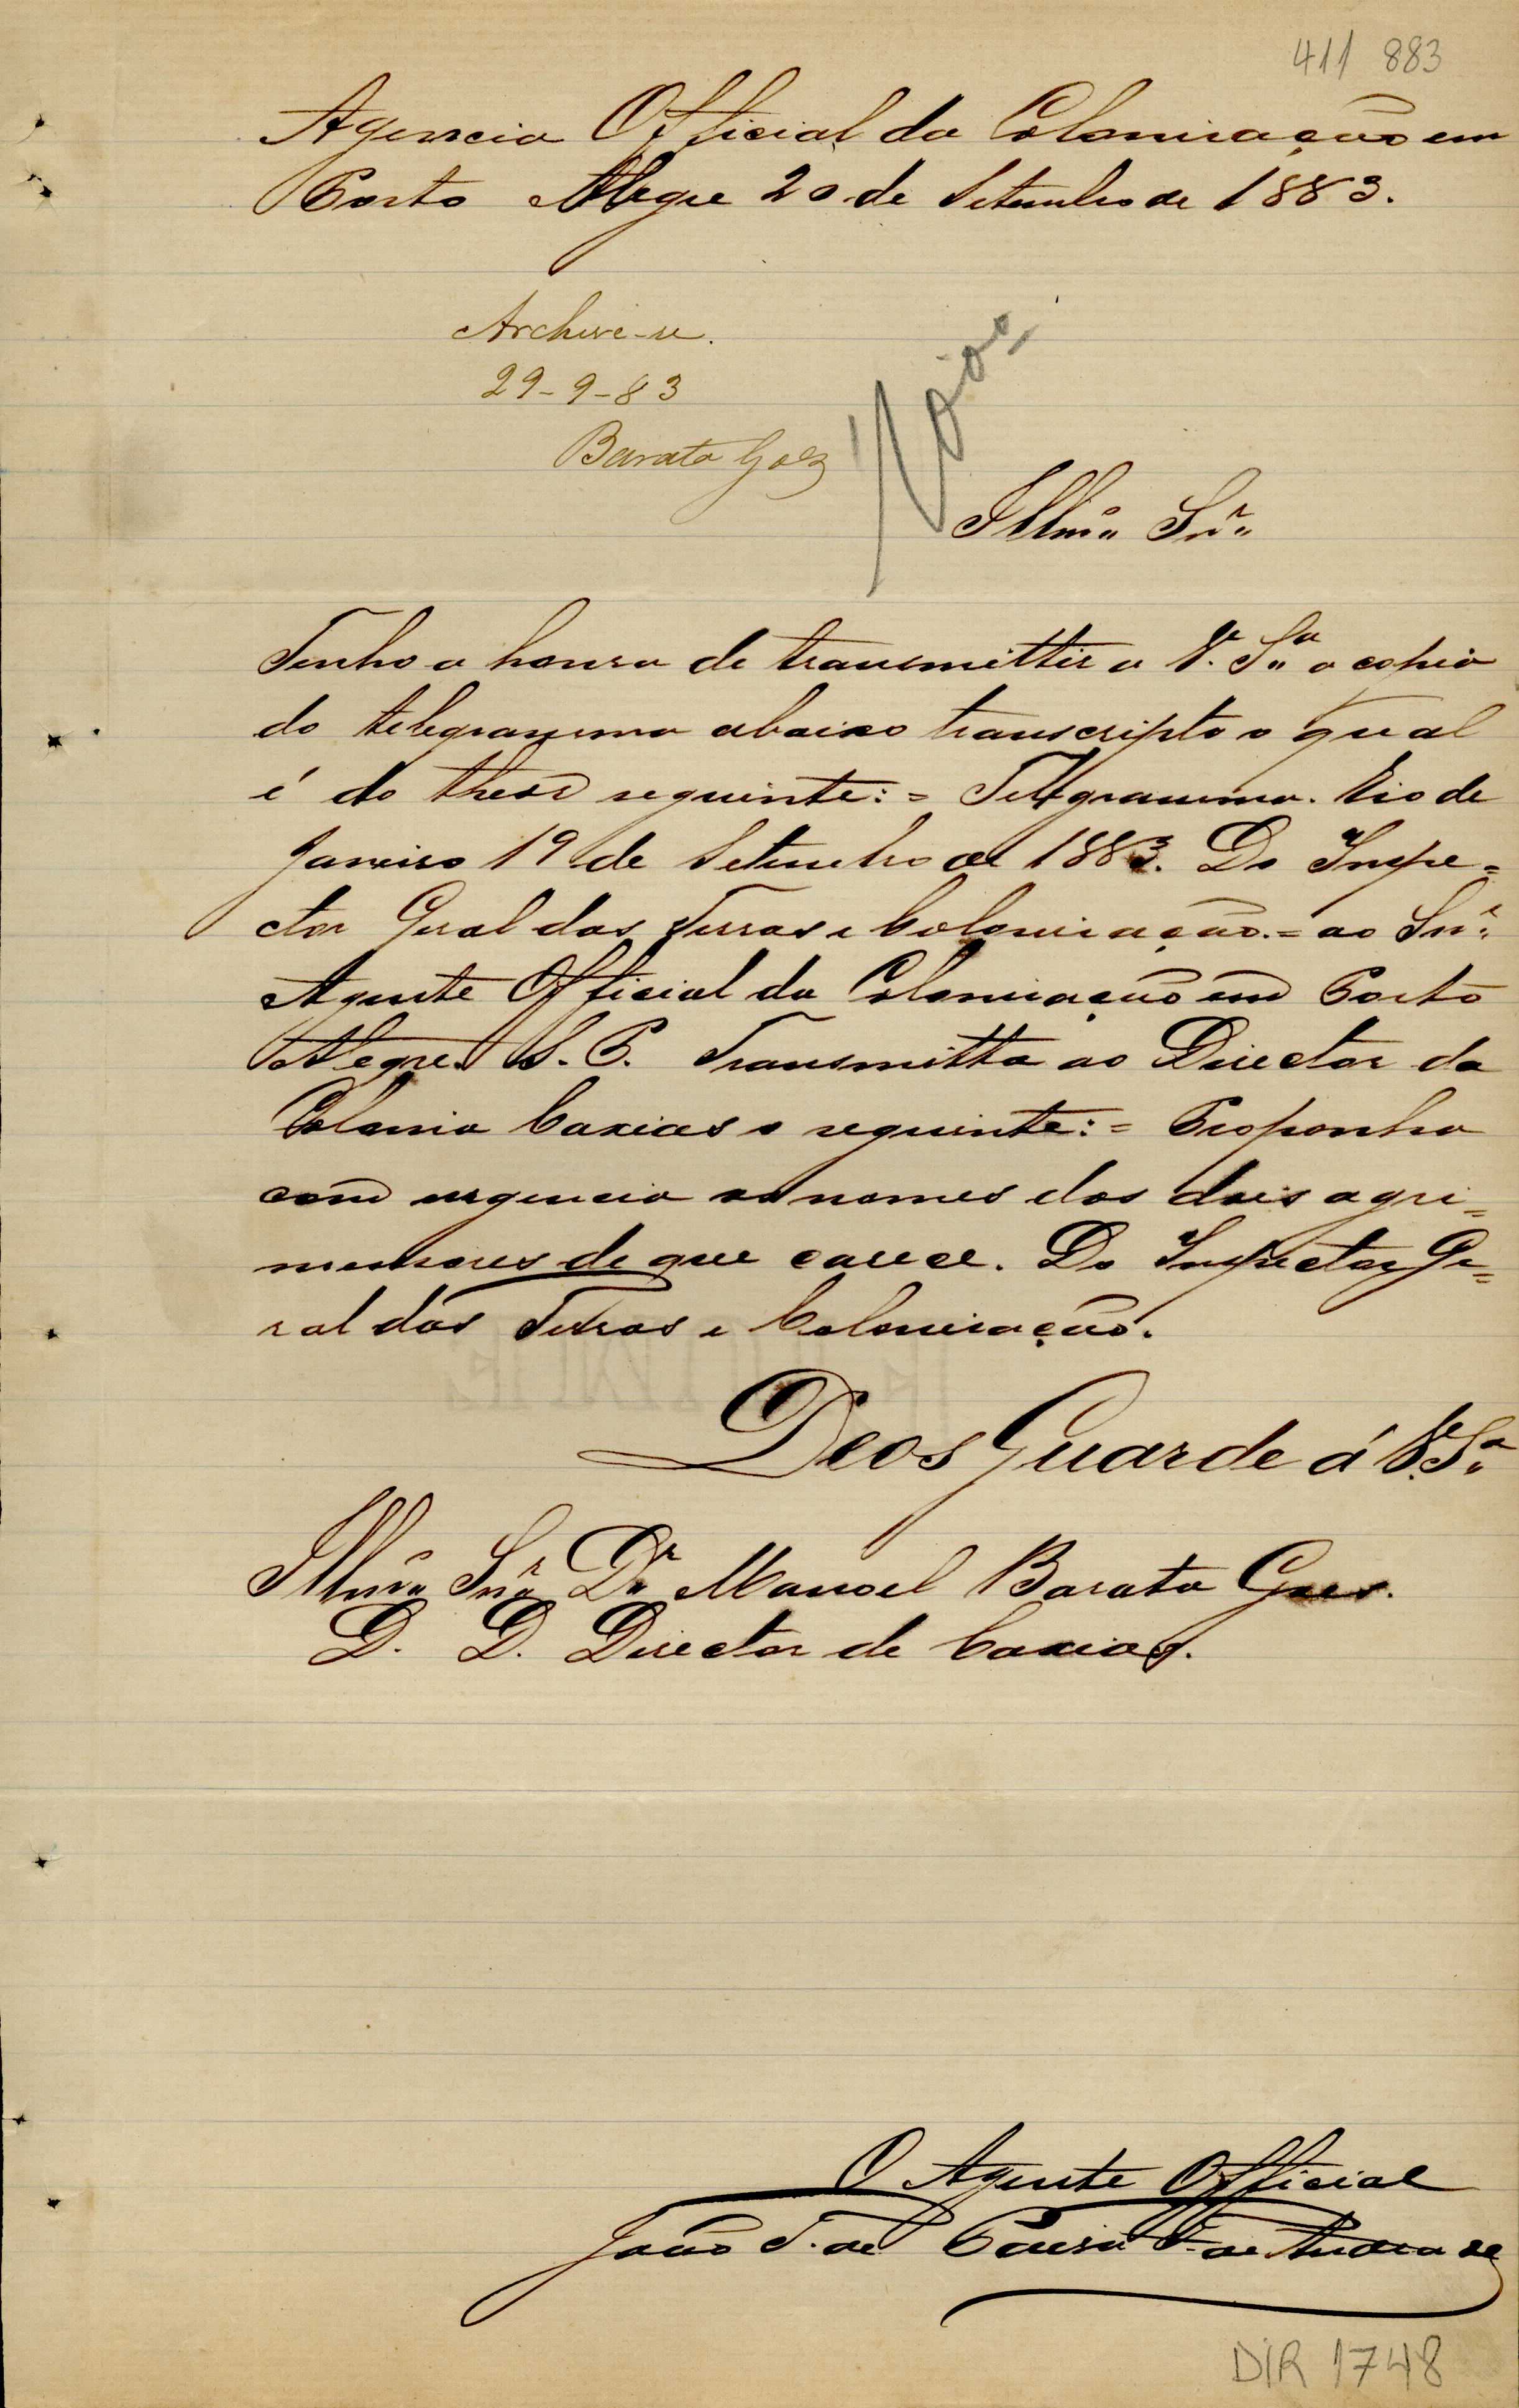 411 883
Agencia Official da Colonisação em
Porto Alegre 20 de Setembro de 1883.
Archive-se.
29-9-83
Barata Goes
Illmo Snr.
Tenho a honra de transmittir a V. Sa a copia
do telegramma abaixo transcripto o qual
é do theor seguinte: = Telegramma. Rio de
Janeiro 19 de Setembro de 1883. Do Inspe=
ctor Geral das Terras e Colonisação. = ao Snr.
Agente Official da Colonisação em Porto
Alegre. S. P. Transmitta ao Director da
Colonia Caxias o seguinte: = Proponha
com urgencia os nomes dos dois agri=
mensores de que carece. Do Inspector Ge=
ral das Terras e Colonisação.
Deos Guarde á V. Sa
Illmo Snr. Dr Manoel Barata Goes.
D. D. Director de Caxias.
O Agente Official
João T. de de Andrade
DIR 1748